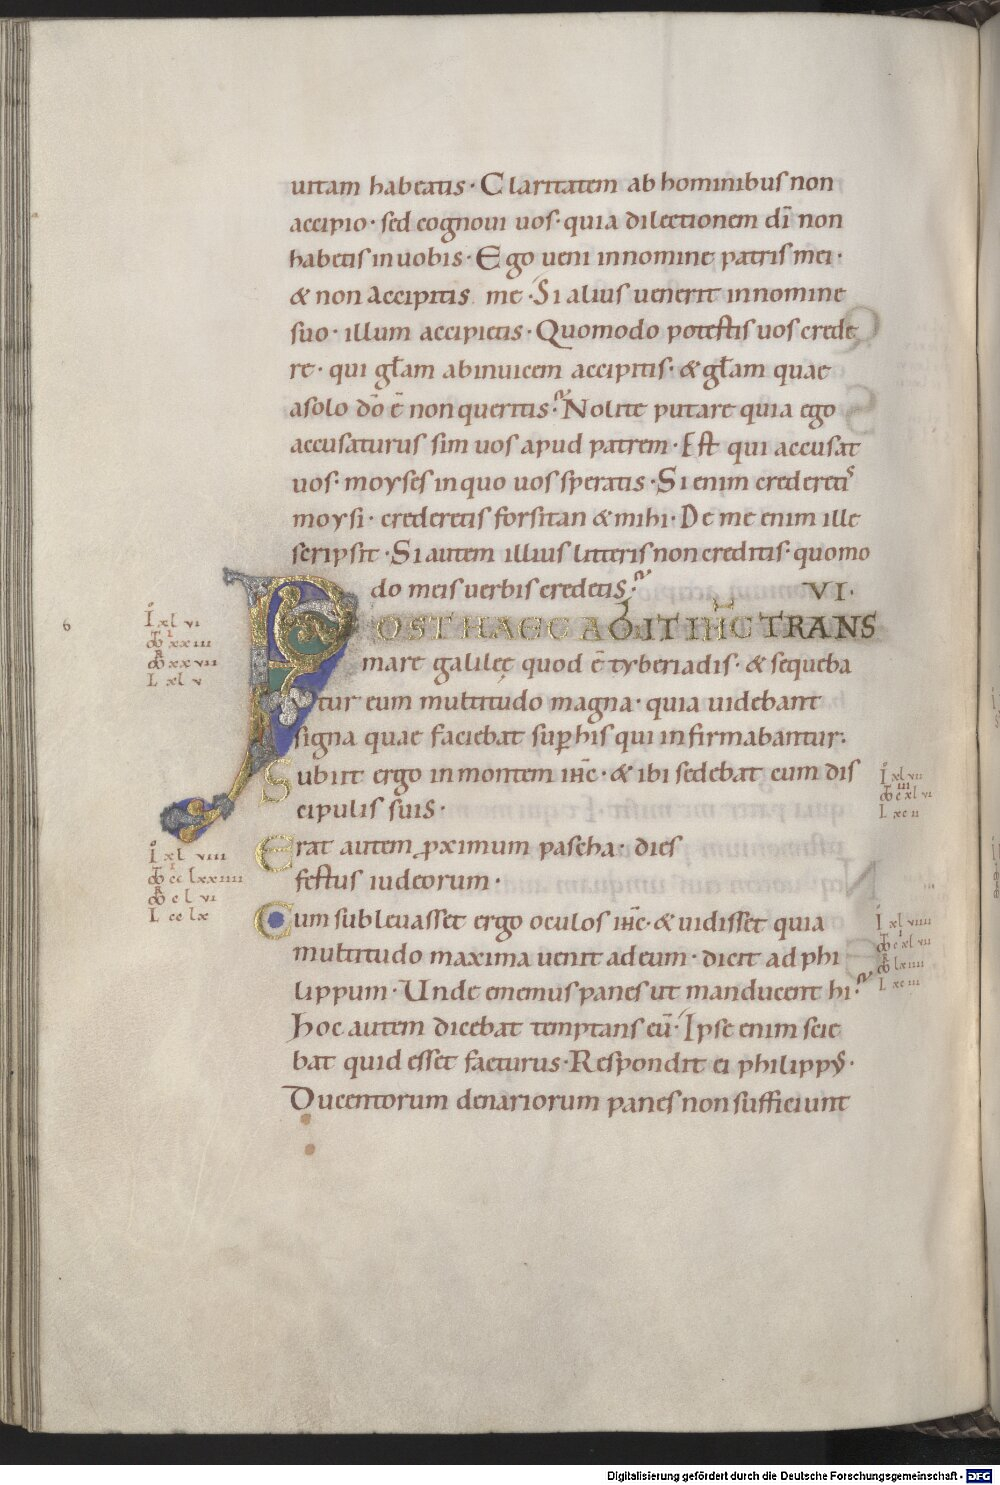 uitam habeatis · Claritatem ab hominibus non
accipio · sed cognoui uos · quia dilectionem dī non
habetis in uobis · Ego ueni in nomine patris mei ·
& non accipitis me · Si alius uenerit in nomine
suo · illum accipietis · Quomodo potestis uos crede
re · qui głam abinuicem accipitis · & głam quae
a solo dō ē non queritis · Nolite putare quia ego
accusaturus sim uos apud patrem · Est qui accusat
uos · moyses in quo uos speratis · Si enim crederetis
moysi · crederetis forsitan & mihi · De me enim ille
scripsit · Si autem illius litteris non creditis · quomo
do meis uerbis credetis ·
VI ·
POST HAEC ABIIT IHC TRANS
mare galileę quod ē tyberiadis · & sequeba
tur eum multitudo magna · quia uidebant
signa quae faciebat sup his qui infirmabantur ·
Subiit ergo in montem ihc · & ibi sedebat cum dis
cipulis suis ·
Erat autem proximum pascha · dies
festus iudeorum ·
Cum subleuasset ergo oculos ihc · & uidisset quia
multitudo maxima uenit ad eum · dicit ad phi
lippum · Unde ememus panes ut manducent hi ·
Hoc autem dicebat temptans eū · Ipse enim scie
bat quid esset facturus · Respondit ei philippus ·
Ducentorum denariorum panes non sufficiunt
6
I xl vi
xx iii
xx vii
L xl v
I xl vii
c xl vi
L xc ii
I xl viii
cc lxx iiii
c l vi
L cc lx
I xl viiii
c xl vii
lx iiii
L xc iii
Digitalisierung gefördert durch die Deutsche Forschungsgemeinschaft - DFG